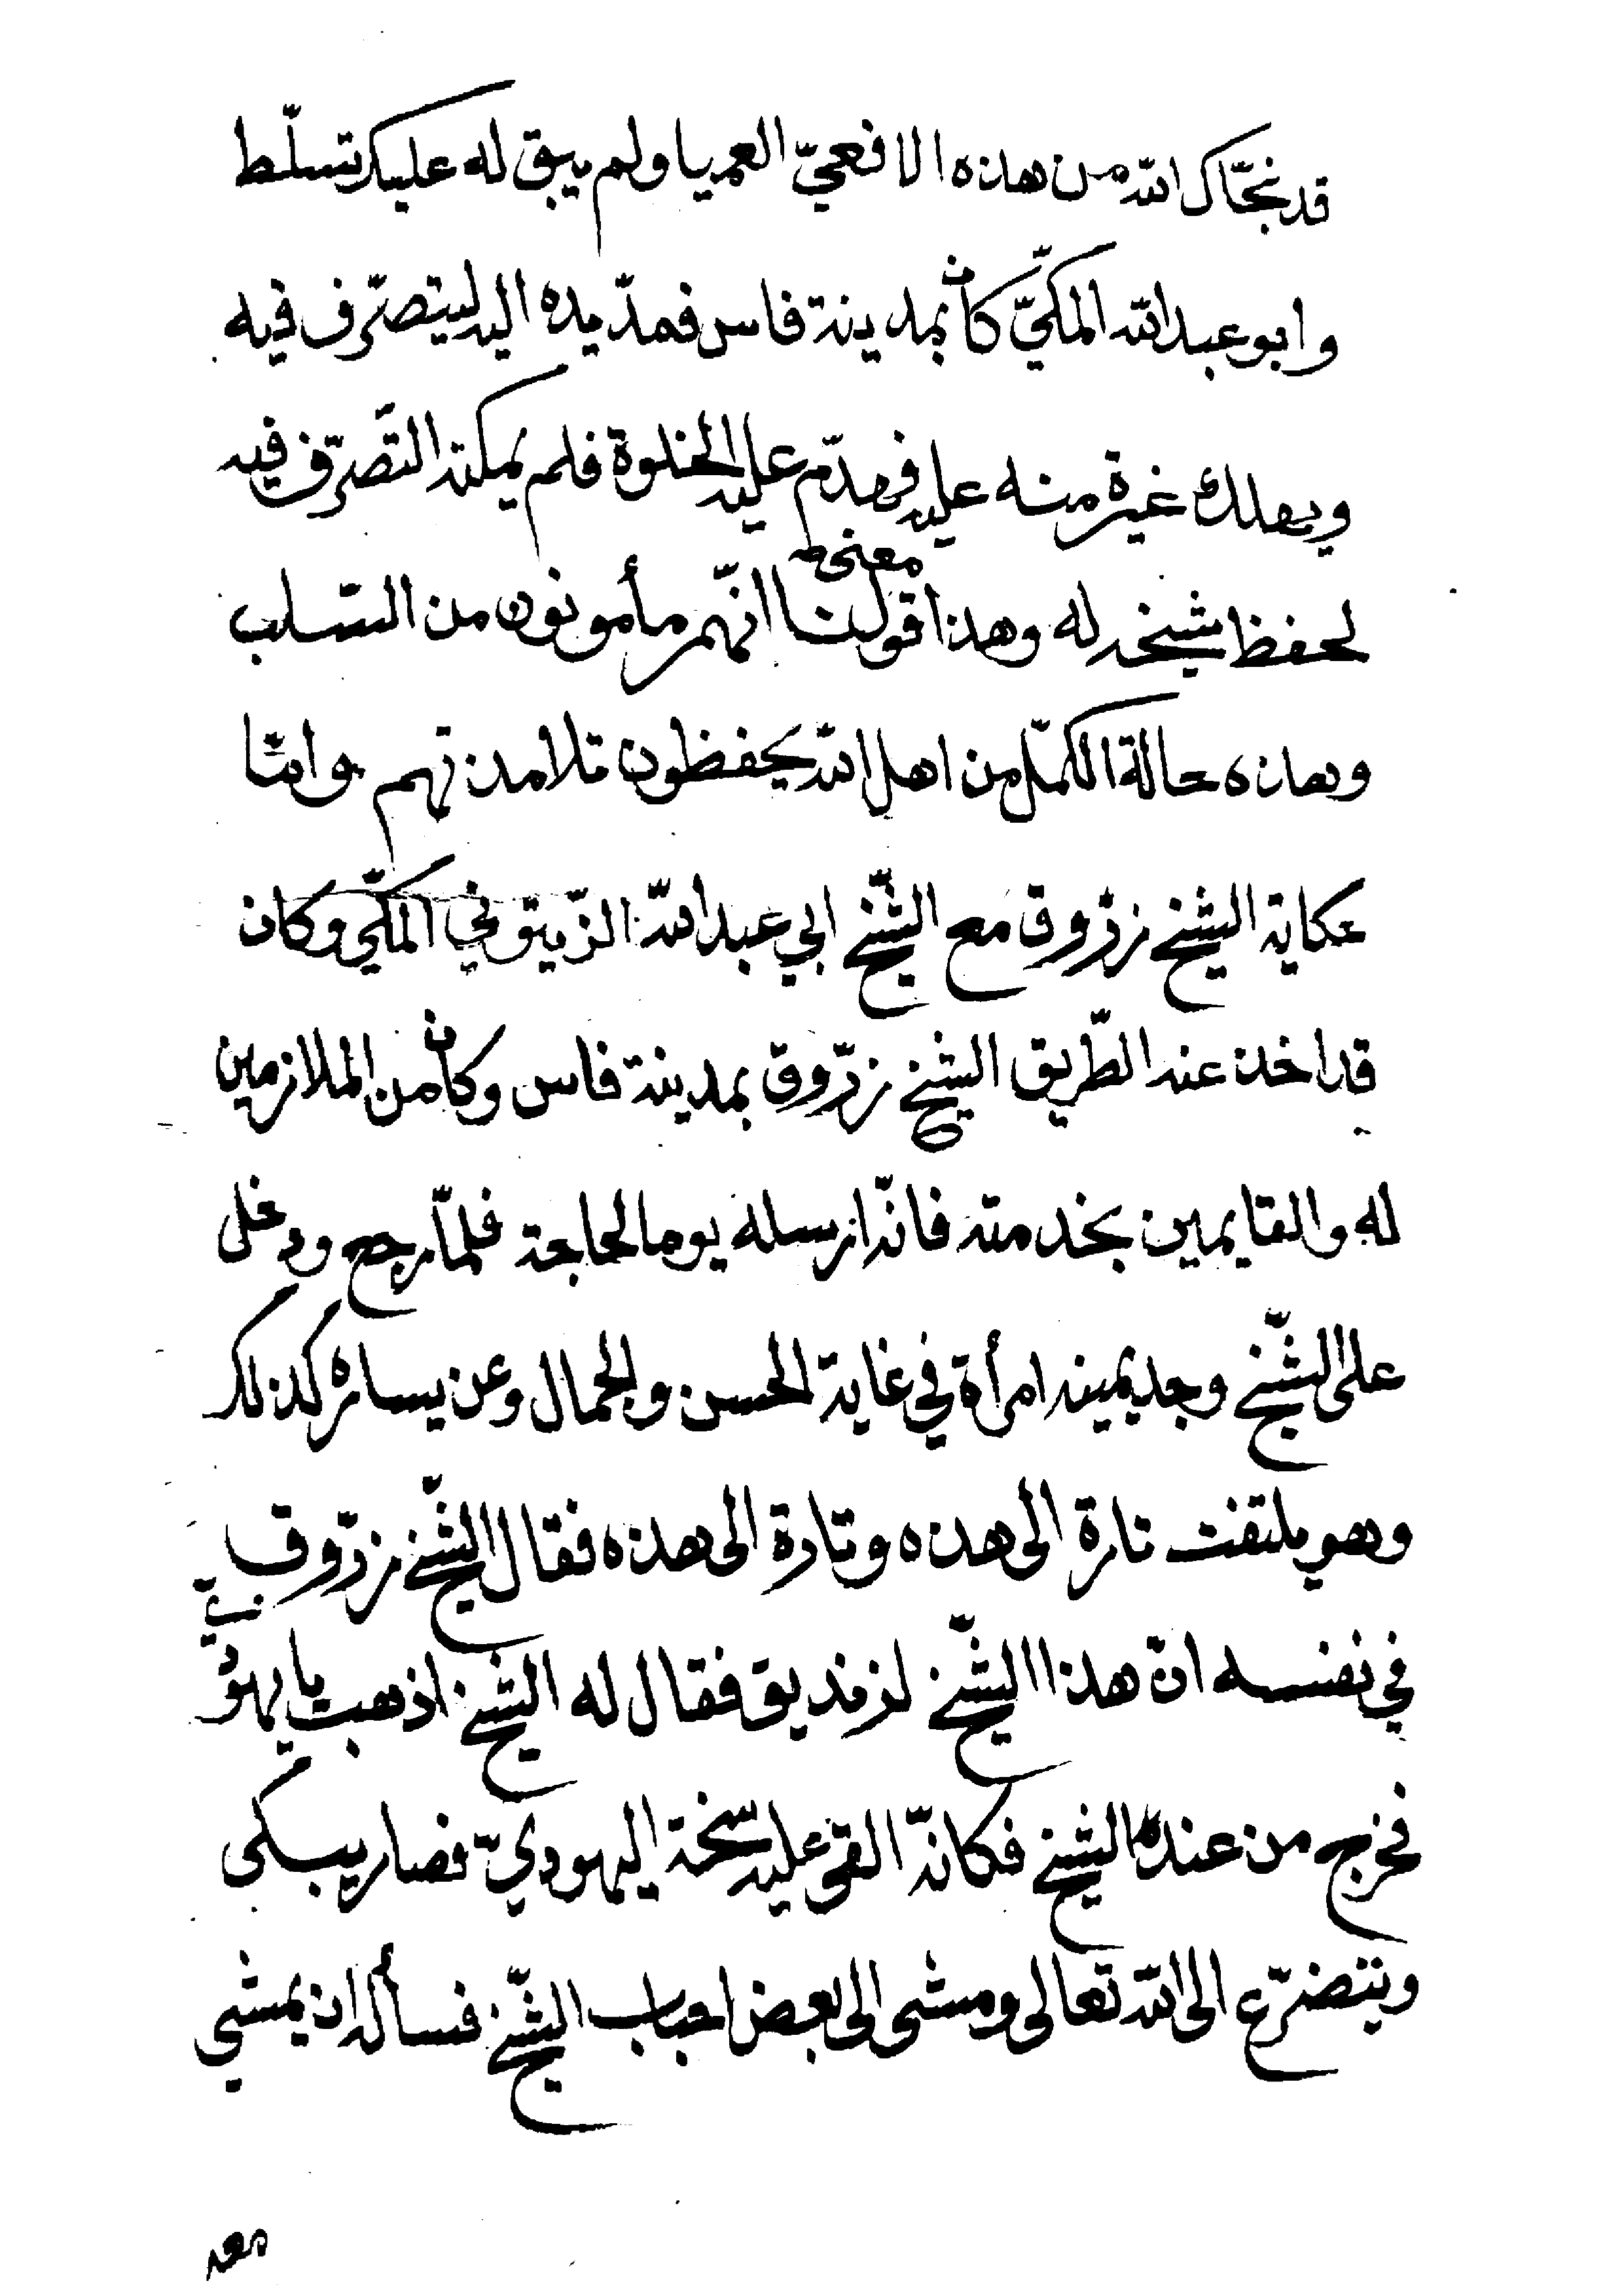 قد نجّاك الله من هذه الافعيّ العميا ولم يبق له عليك تسلّط
وابو عبدالله المكيّ كان بمدينة فاس فمدّ يده اليه ليتصرّف فيه
ويهلك غيرة منه عليه فهدّم عليه الخلوة فلم يمكنه التّصرّف فيه
لحفظ شيخه له وهذا معنى قولنا انّهم مأمونون من السّلب
وهذه حالة الكمّل من اهل الله يحفظون تلامذتهم وامّا
حكاية الشيخ زرّوق مع الشّيخ ابي عبدالله الزّيتوني المكّي وكان
قد اخذ عنه الطّريق الشيخ زرّوق بمدينة فاس وكان من الملازمين
له والقايمين بخدمته فانّه ارسله يوما لحاجة فلمّا رجع ودخل
على الشّيخ وجد يمينه امرأة في غاية الحسن والجمال وعن يساره كذلك
وهو يلتفت تارة الى هذه وتارة الى هذه فقال الشّيخ زرّوق
في نفسه انّ هذا الشّيخ لزنديق فقال له الشيخ اذهب يا يهودي
فخرج من عند الشيخ فكانّه القى عليه سخة اليهوديّ فصار يبكى
ويتضرّع الى الله تعالى ومشى الى بعض احباب الشّيخ فسأله ان يمشي
معه